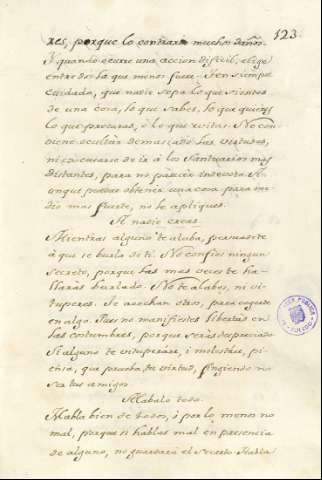 123.
res, porque lo contrario muchos daños.
Y quando ocurre una accion dificil, elige
entre dos la que menos fuere. Ten siempre
cuidado, que nadie sepa lo que sientes
de una cosa, lo que sabes, lo que quieres
lo que procuras, ò lo que evitas. No con
viene ocultar demasiado las virtudes,
ni escusarse de ir à los Santuarios mas
distantes, para no parecer indevoto. A
unque puedas obtener una cosa por me
dio mas fuerte, no le apliques.
A nadie creas.
Mientras alguno te alaba, persuadete
à que se burla de ti. No confies ningun
secreto, porque las mas veces te ha-
llaràs burlado. No te alabes, ni vi-
tuperes. Te acechan otros, para cogerte
en algo. Pues no manifiestes libertad en
las costumbres, porque seràs despreciado
Si alguno te vituperare, i molestare,
que prueba tu virtud, fingiendo no
ser tus amigos.
Alabalo todo.
Habla bien de todos, ò por lo menos no
mal, porque si hablas mal en presencia
de alguno, no guardarà el secreto. Habla
TOLEDO